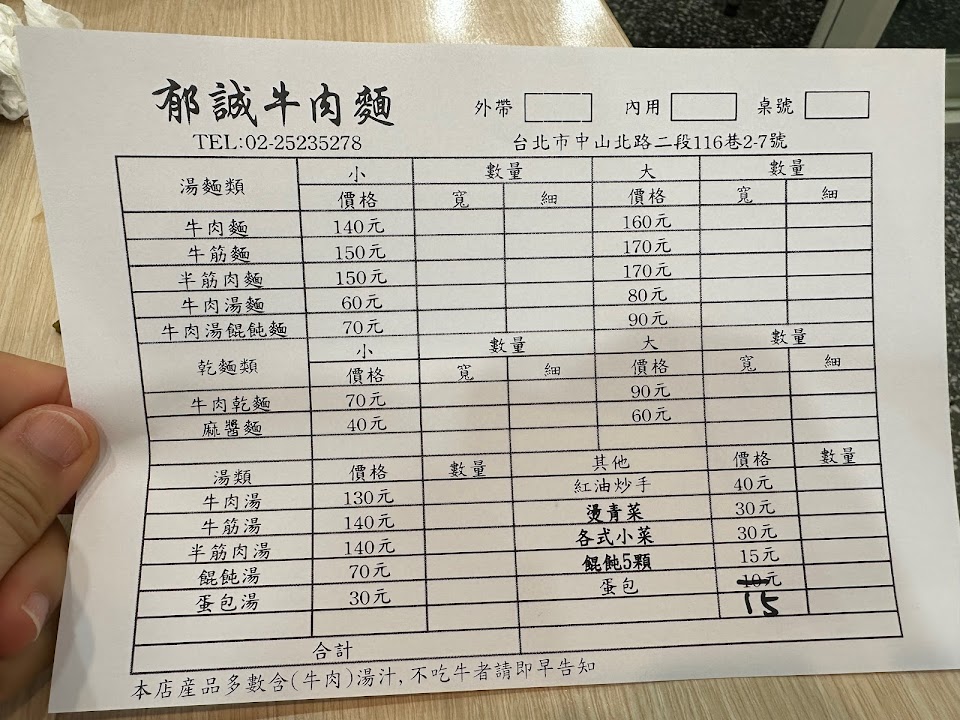 郁誠牛肉麵 外帶 內用 桌號
TEL:02-25235278 台北市中山北路二段116巷2-7號
湯麵類 小 數量 大 數量
價格 寬 細 價格 寬 細
牛肉麵 140元 160元
牛筋麵 150元 170元
半筋肉麵 150元 170元
牛肉湯麵 60元 80元
牛肉湯餛飩麵 70元 90元
乾麵類 小 數量 大 數量
價格 寬 細 價格 寬 細
牛肉乾麵 70元 90元
麻醬麵 40元 60元
湯類 價格 數量 其他 價格 數量
牛肉湯 130元 紅油炒手 40元
牛筋湯 140元 燙青菜 30元
半筋肉湯 140元 各式小菜 30元
餛飩湯 70元 餛飩5顆 15元
蛋包湯 30元 蛋包 10元
15
合計
本店產品多數含(牛肉)湯汁,不吃牛者請即早告知